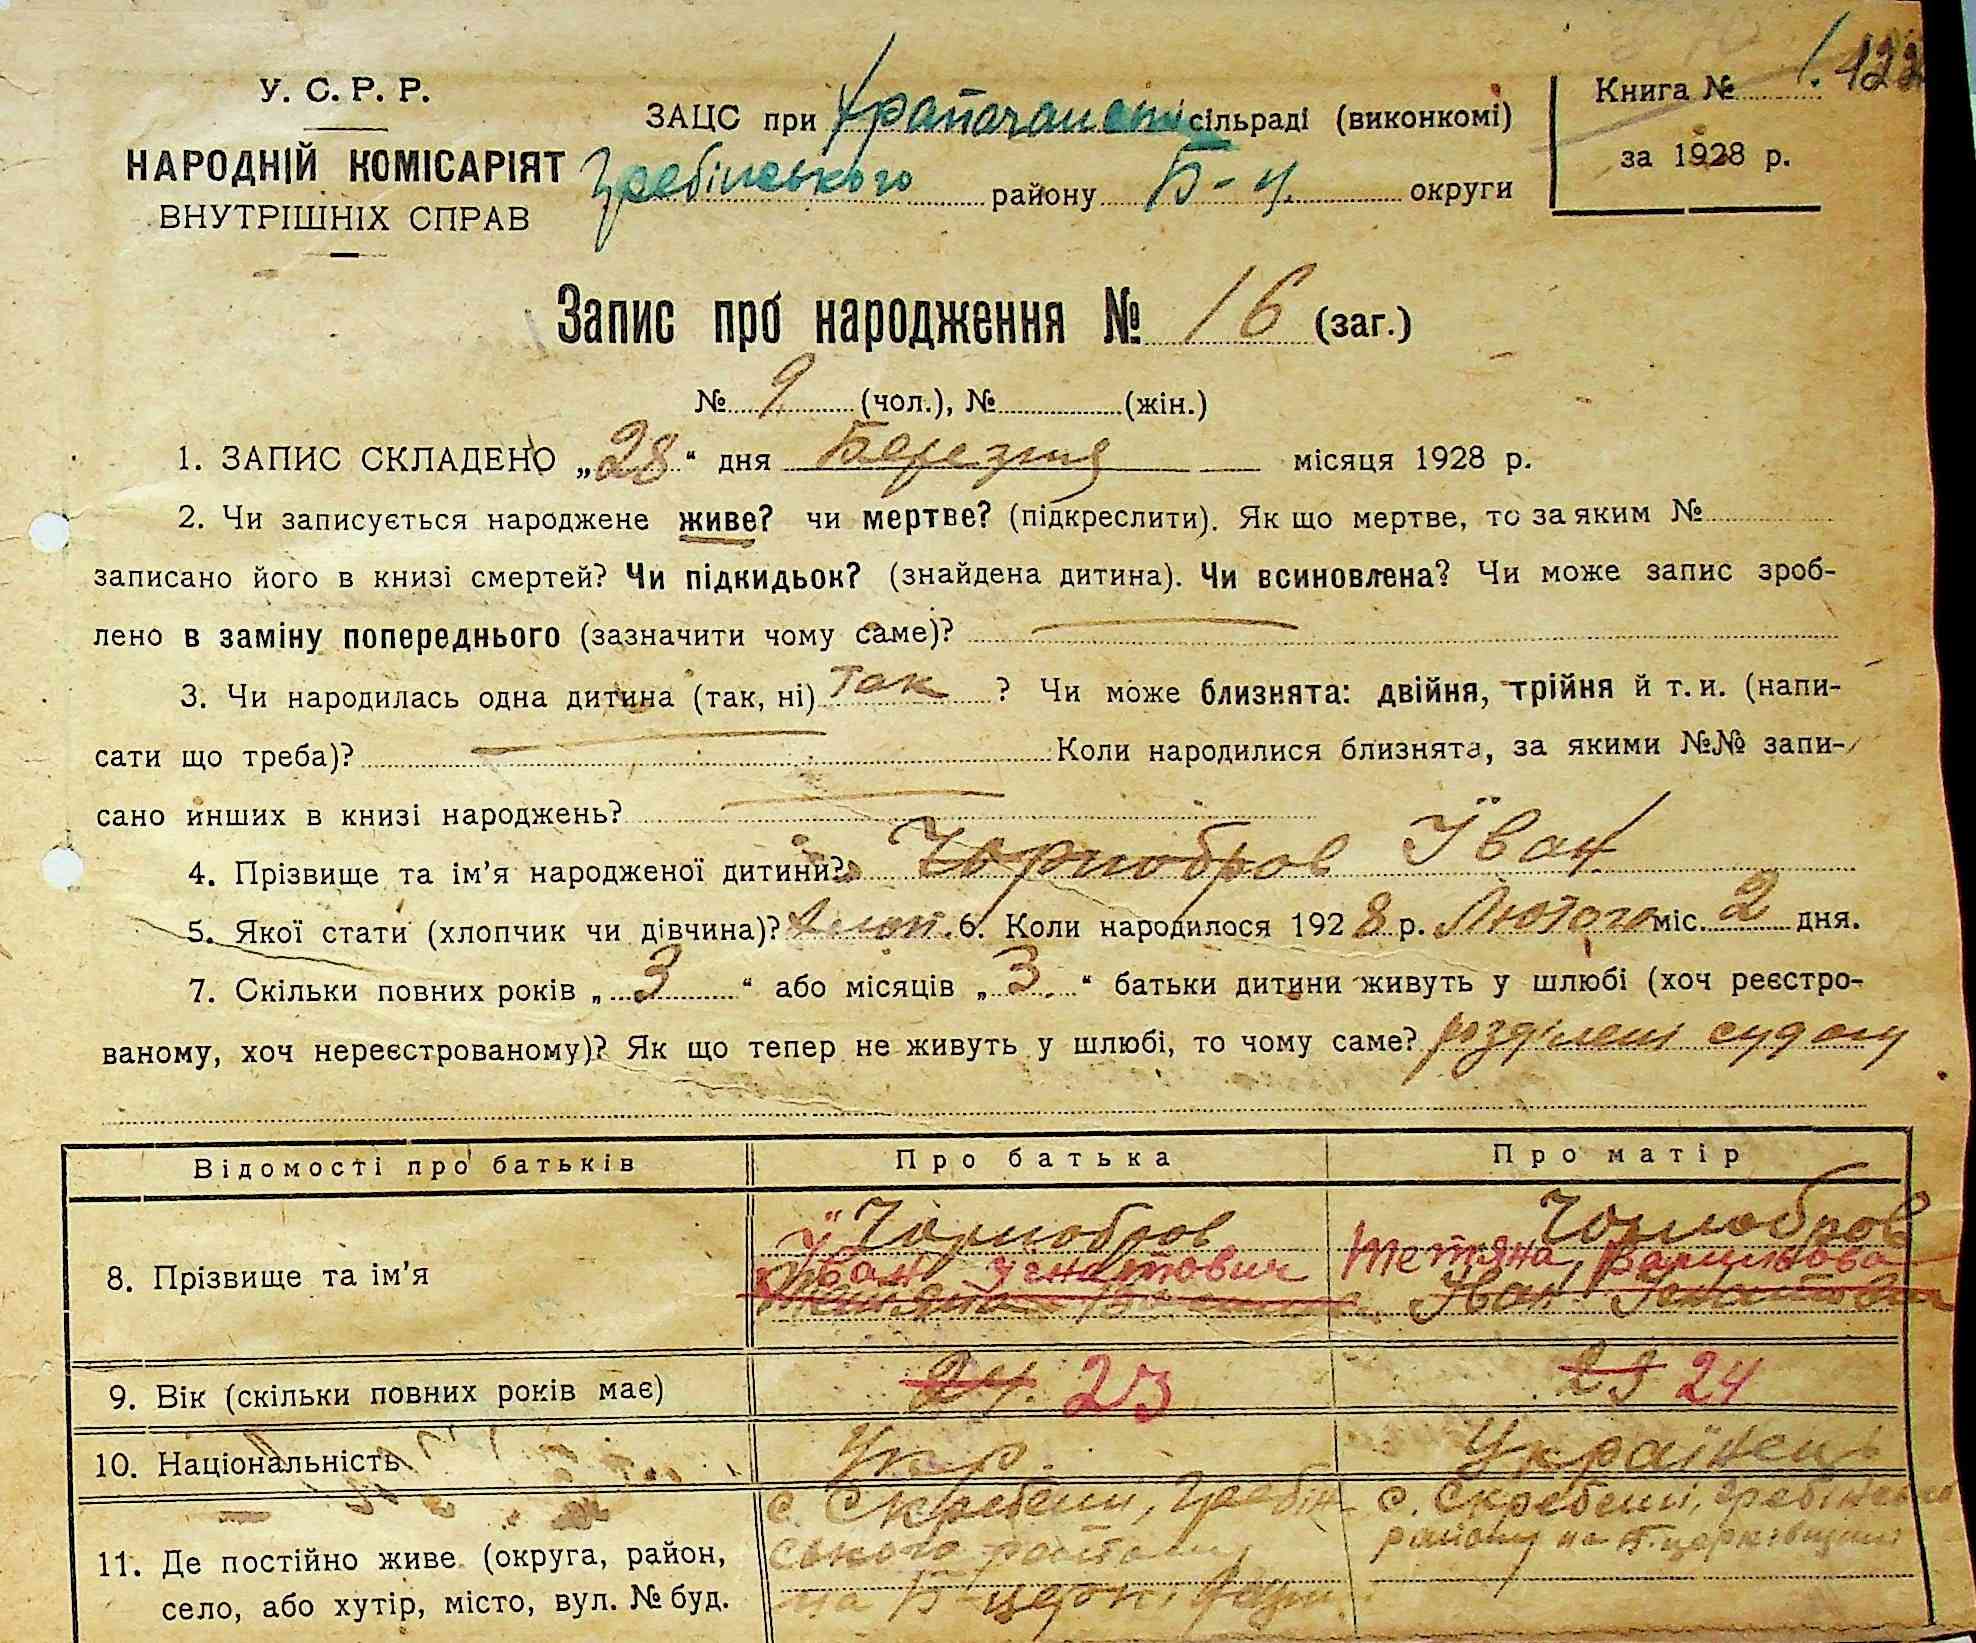 У. С. Р. Р.
НАРОДНІЙ КОМІСАРІЯТ
ВНУТРІШНІХ СПРАВ
ЗАЦС при сільраді (виконкомі)
Гребінського району Б-Ц. округи
Книга № 1. 122
за 1928 р.
Запис про народження № 16 (заг.)
№ 9 (чол.), № (жін.)
1. ЗАПИС СКЛАДЕНО „28“ дня Березня місяця 1928 р.
2. Чи записується народжене живе? чи мертве? (підкреслити). Як що мертве, то за яким №
записано його в книзі смертей? Чи підкидьок? (знайдена дитина). Чи всиновлена? Чи може запис зроб-
лено в заміну попереднього (зазначити чому саме)?
3. Чи народилась одна дитина (так, ні) так ? Чи може близнята: двійня, трійня й т. и. (напи-
сати що треба)? Коли народилися близнята, за якими №№ запи-
сано инших в книзі народжень?
4. Прізвище та ім’я народженої дитини? Чорнобров Іван
5. Якої стати (хлопчик чи дівчина)? хлоп. 6. Коли народилося 1928 р. Лютого міс. 2 дня.
7. Скільки повних років „3“ або місяців „3“ батьки дитини живуть у шлюбі (хоч реєстро-
ваному, хоч нереєстрованому)? Як що тепер не живуть у шлюбі, то чому саме? розділені судом
Відомості про батьків Про батька Про матір
8. Прізвище та ім’я Чорнобров Чорнобров
Іван Гнатович Тетяна
Тетяна Іван
9. Вік (скільки повних років має) 24. 23 23 24
10. Національність Укр. Українець
11. Де постійно живе (округа, район,
село, або хутір, місто, вул. № буд.
с. Скребеші, Гребін
ського району
на Б-церківщ.
с. Скребеші, Гребінсько
району на Б. церківщині